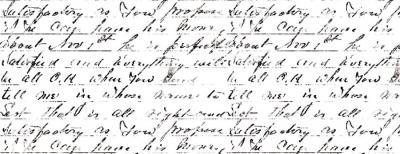 satisfactory as Your propose satisfactory as Your propose
The Coy. have his Money, The Coy. have his
about Nov 1st he is perfectly about Nov 1st he is
satisfied and everything will satisfied and everything
be all O.K. when You be all O.K. when You
tell me in whose name to tell me in whose
that is all right and that is all
satisfactory as Your propose satisfactory as Your propose
The Coy. have his Money, The Coy. have his